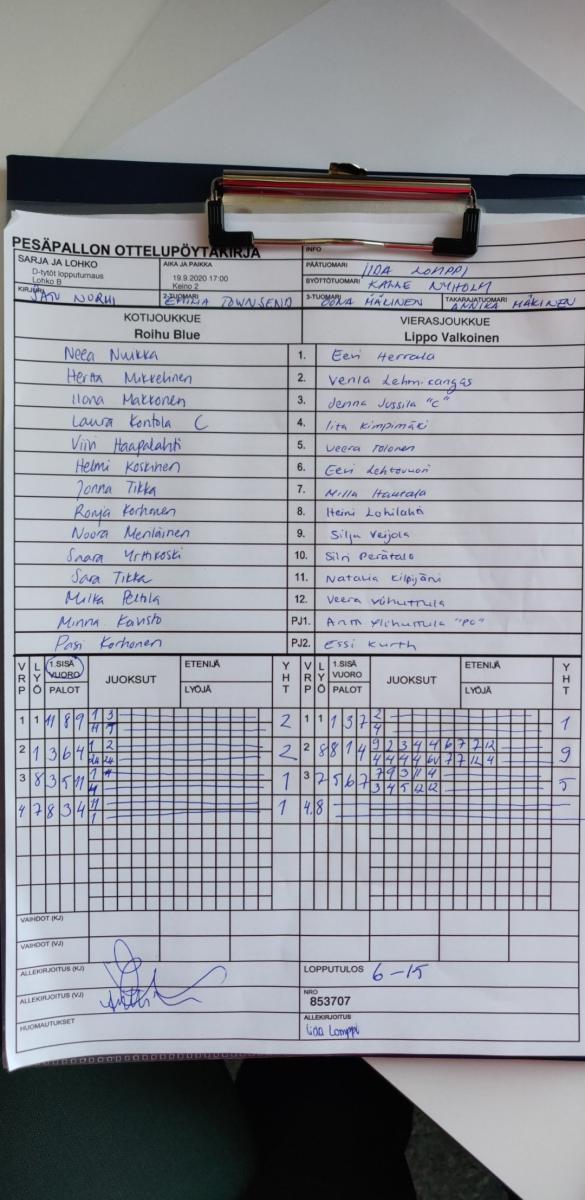 PESÄPALLON OTTELUPÖYTÄKIRJA
INFO
SARJA JA LOHKO
D-tytöt lopputurnaus
Lohko B
AIKA JA PAIKKA
19.9.2020 17:00
Keino 2
PÄÄTUOMARI IIDA LOMPPI
SYÖTTÖTUOMARI KALLE NYHOLM
KIRJURI SATU
2-TUOMARI EMILIA TOWNSEND
3-TUOMARI OONA MÄLINEN
TAKARAJATUOMARI ANNIKA MÄKINEN
KOTIJOUKKUE
Roihu Blue
VIERASJOUKKUE
Lippo Valkoinen
Neea Nuikka 1. Eevi Herrala
Hertta Mikkelinen 2. Venla Lehmikangas
Ilona Makkonen 3. Jenna Jussila "C"
Laura Kontola C 4. Iita Kimpimäki
Viivi Haapalahti 5. Veera Tolonen
Helmi Koskinen 6. Eevi Lehtovuori
Jonna Tikka 7. Milla Hautala
Ronja Korhonen 8. Heini Lohilahti
Noora Meriläinen 9. Silja Veijola
Saara Yrttikoski 10. Siiri Perätalo
Sara Tikka 11. Natalia Kilpijärvi
Milka Peltola 12. Veera
Minna Kaivisto PJ1.
Pasi Korhonen PJ2. Essi Kurth
VRP LYÖ 1.SISÄ VUORO PALOT JUOKSUT ETENIJÄ LYÖJÄ YHT
VRP LYÖ 1.SISÄ VUORO PALOT JUOKSUT ETENIJÄ LYÖJÄ YHT
1 1 11 8 9 2 1 1 1 3 7 1
2 1 3 6 4 2 2 8 8 1 4 9
3 8 3 5 11 1 3 7 5 6 7 5
4 7 8 3 4 1 4. 8
VAIHDOT (KJ)
VAIHDOT (VJ)
ALLEKIRJOITUS (KJ)
LOPPUTULOS 6-15
ALLEKIRJOITUS (VJ)
NRO
853707
HUOMAUTUKSET
ALLEKIRJOITUS
Iida Lomppi